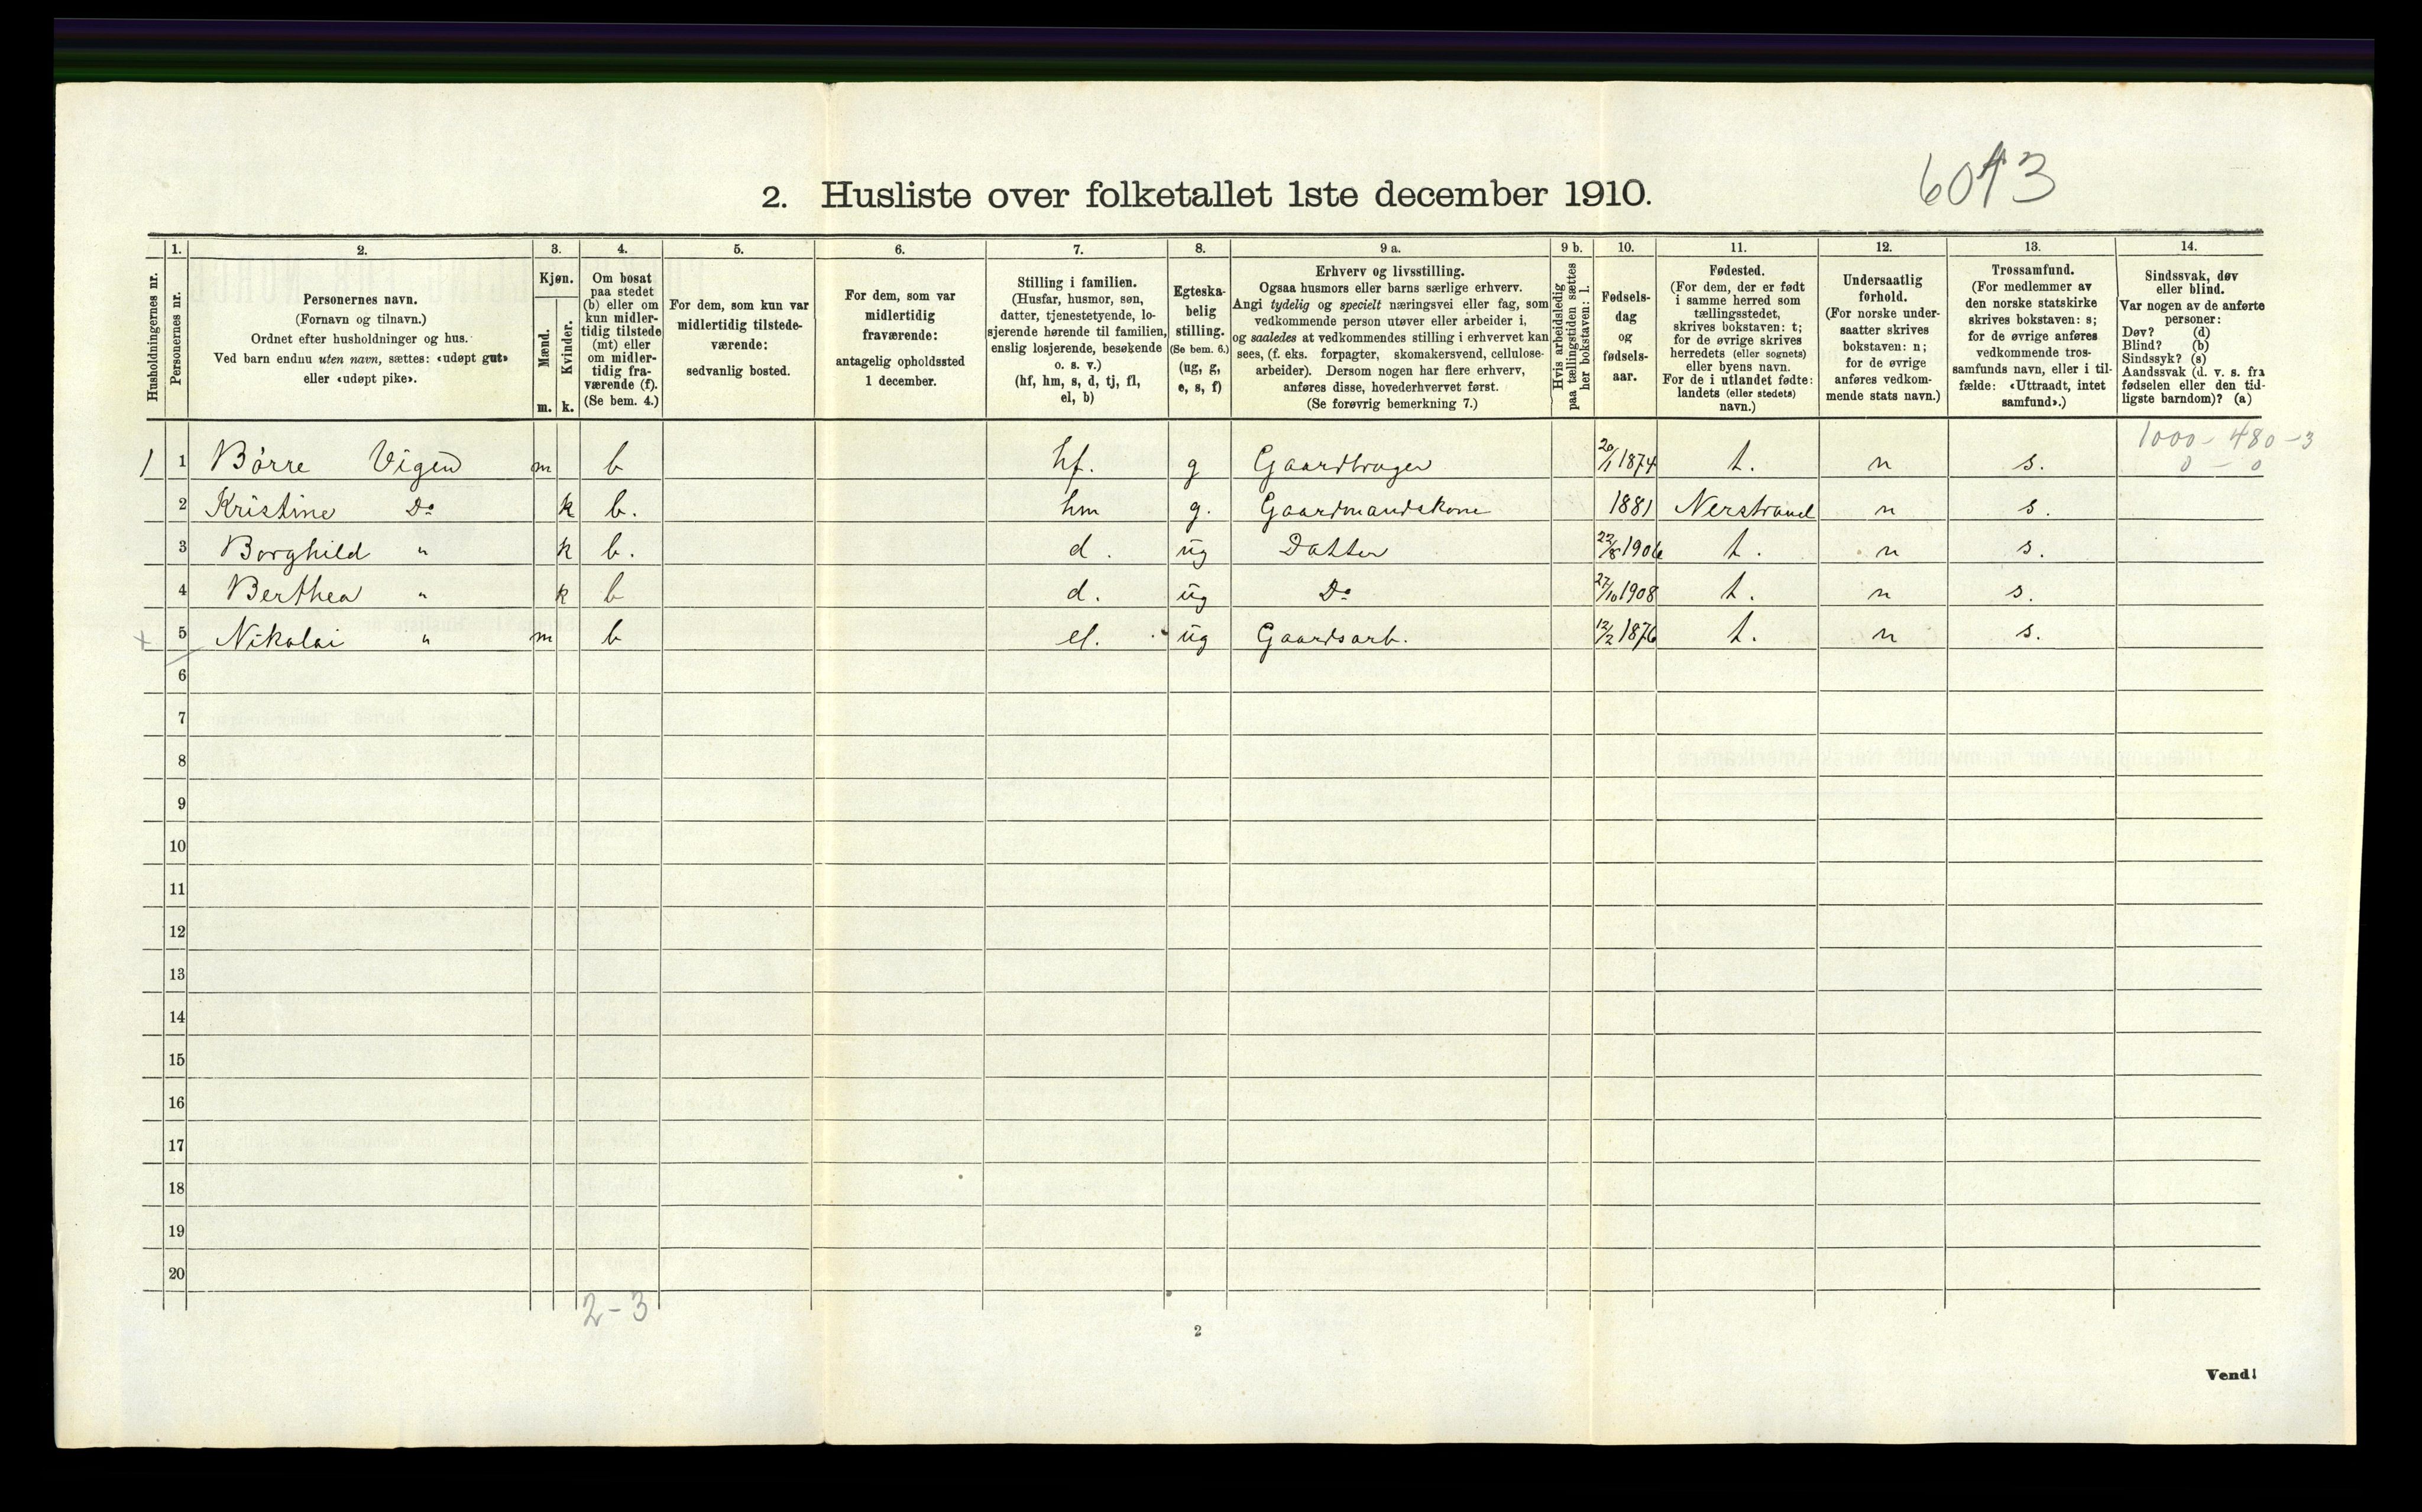 6013
2. Husliste over folketallet 1ste december 1910.
Husholdningernes nr.
1. Personernes nr.
2. Personernes navn.
(Fornavn og tilnavn.)
Ordnet efter husholdninger og hus.
Ved barn endnu uten navn, sættes: «udøpt gut»
eller «udøpt pike».
3. Kjøn.
Mænd. m.
Kvinder. k.
4. Om bosat
paa stedet
(b) eller om
kun midler-
tidig tilstede
(mt) eller
om midler-
tidig fra-
værende (f).
(Se bem. 4.)
5. For dem, som kun var
midlertidig tilstede-
værende:
sedvanlig bosted.
6. For dem, som var
midlertidig
fraværende:
antagelig opholdssted
1 december.
7. Stilling i familien.
(Husfar, husmor, søn,
datter, tjenestetyende, lo-
sjerende hørende til familien,
enslig losjerende, besøkende
o. s. v.)
(hf, hm, s, d, tj, fl,
el, b)
8. Egteska-
belig
stilling.
(Se bem. 6.)
(ug, g,
e, s, f)
9 a. Erhverv og livsstilling.
Ogsaa husmors eller barns særlige erhverv.
Angi tydelig og specielt næringsvei eller fag, som
vedkommende person utøver eller arbeider i,
og saaledes at vedkommendes stilling i erhvervet kan
sees, (f. eks. forpagter, skomakersvend, cellulose-
arbeider). Dersom nogen har flere erhverv,
anføres disse, hovederhvervet først.
(Se forøvrig bemerkning 7.)
9 b. Hvis arbeidsledig
paa tællingstiden sættes
her bokstaven: l.
10. Fødsels-
dag
og
fødsels-
aar.
11. Fødested.
(For dem, der er født
i samme herred som
tællingsstedet,
skrives bokstaven: t;
for de øvrige skrives
herredets (eller sognets)
eller byens navn.
For de i utlandet fødte:
landets (eller stedets)
navn.)
12. Undersaatlig
forhold.
(For norske under-
saatter skrives
bokstaven: n;
for de øvrige
anføres vedkom-
mende stats navn.)
13. Trossamfund.
(For medlemmer av
den norske statskirke
skrives bokstaven: s;
for de øvrige anføres
vedkommende tros-
samfunds navn, eller i til-
fælde: «Uttraadt, intet
samfund».)
14. Sindssvak, døv
eller blind.
Var nogen av de anførte
personer:
Døv? (d)
Blind? (b)
Sindssyk? (s)
Aandssvak (d. v. s. fra
fødselen eller den tid-
ligste barndom)? (a)
1000 - 480 - 3
0 - 0
1 1 Børre Vigen m b hf. g Gaardbruger 20/1 1874 t. n s.
2 Kristine Do k b. hm g. Gaardmandskone 1881 Nerstrand n s.
3 Borghild " k b. d. ug Datter 22/8 1906 t. n s.
4 Berthea " k b d. ug Do 27/10 1908 t. n s.
x 5 Nikolai " m b el. ug Gaardsarb. 12/2 1876 t. n s.
6
7
8
9
10
11
12
13
14
15
16
17
18
19
20
2-3
2
Vend!